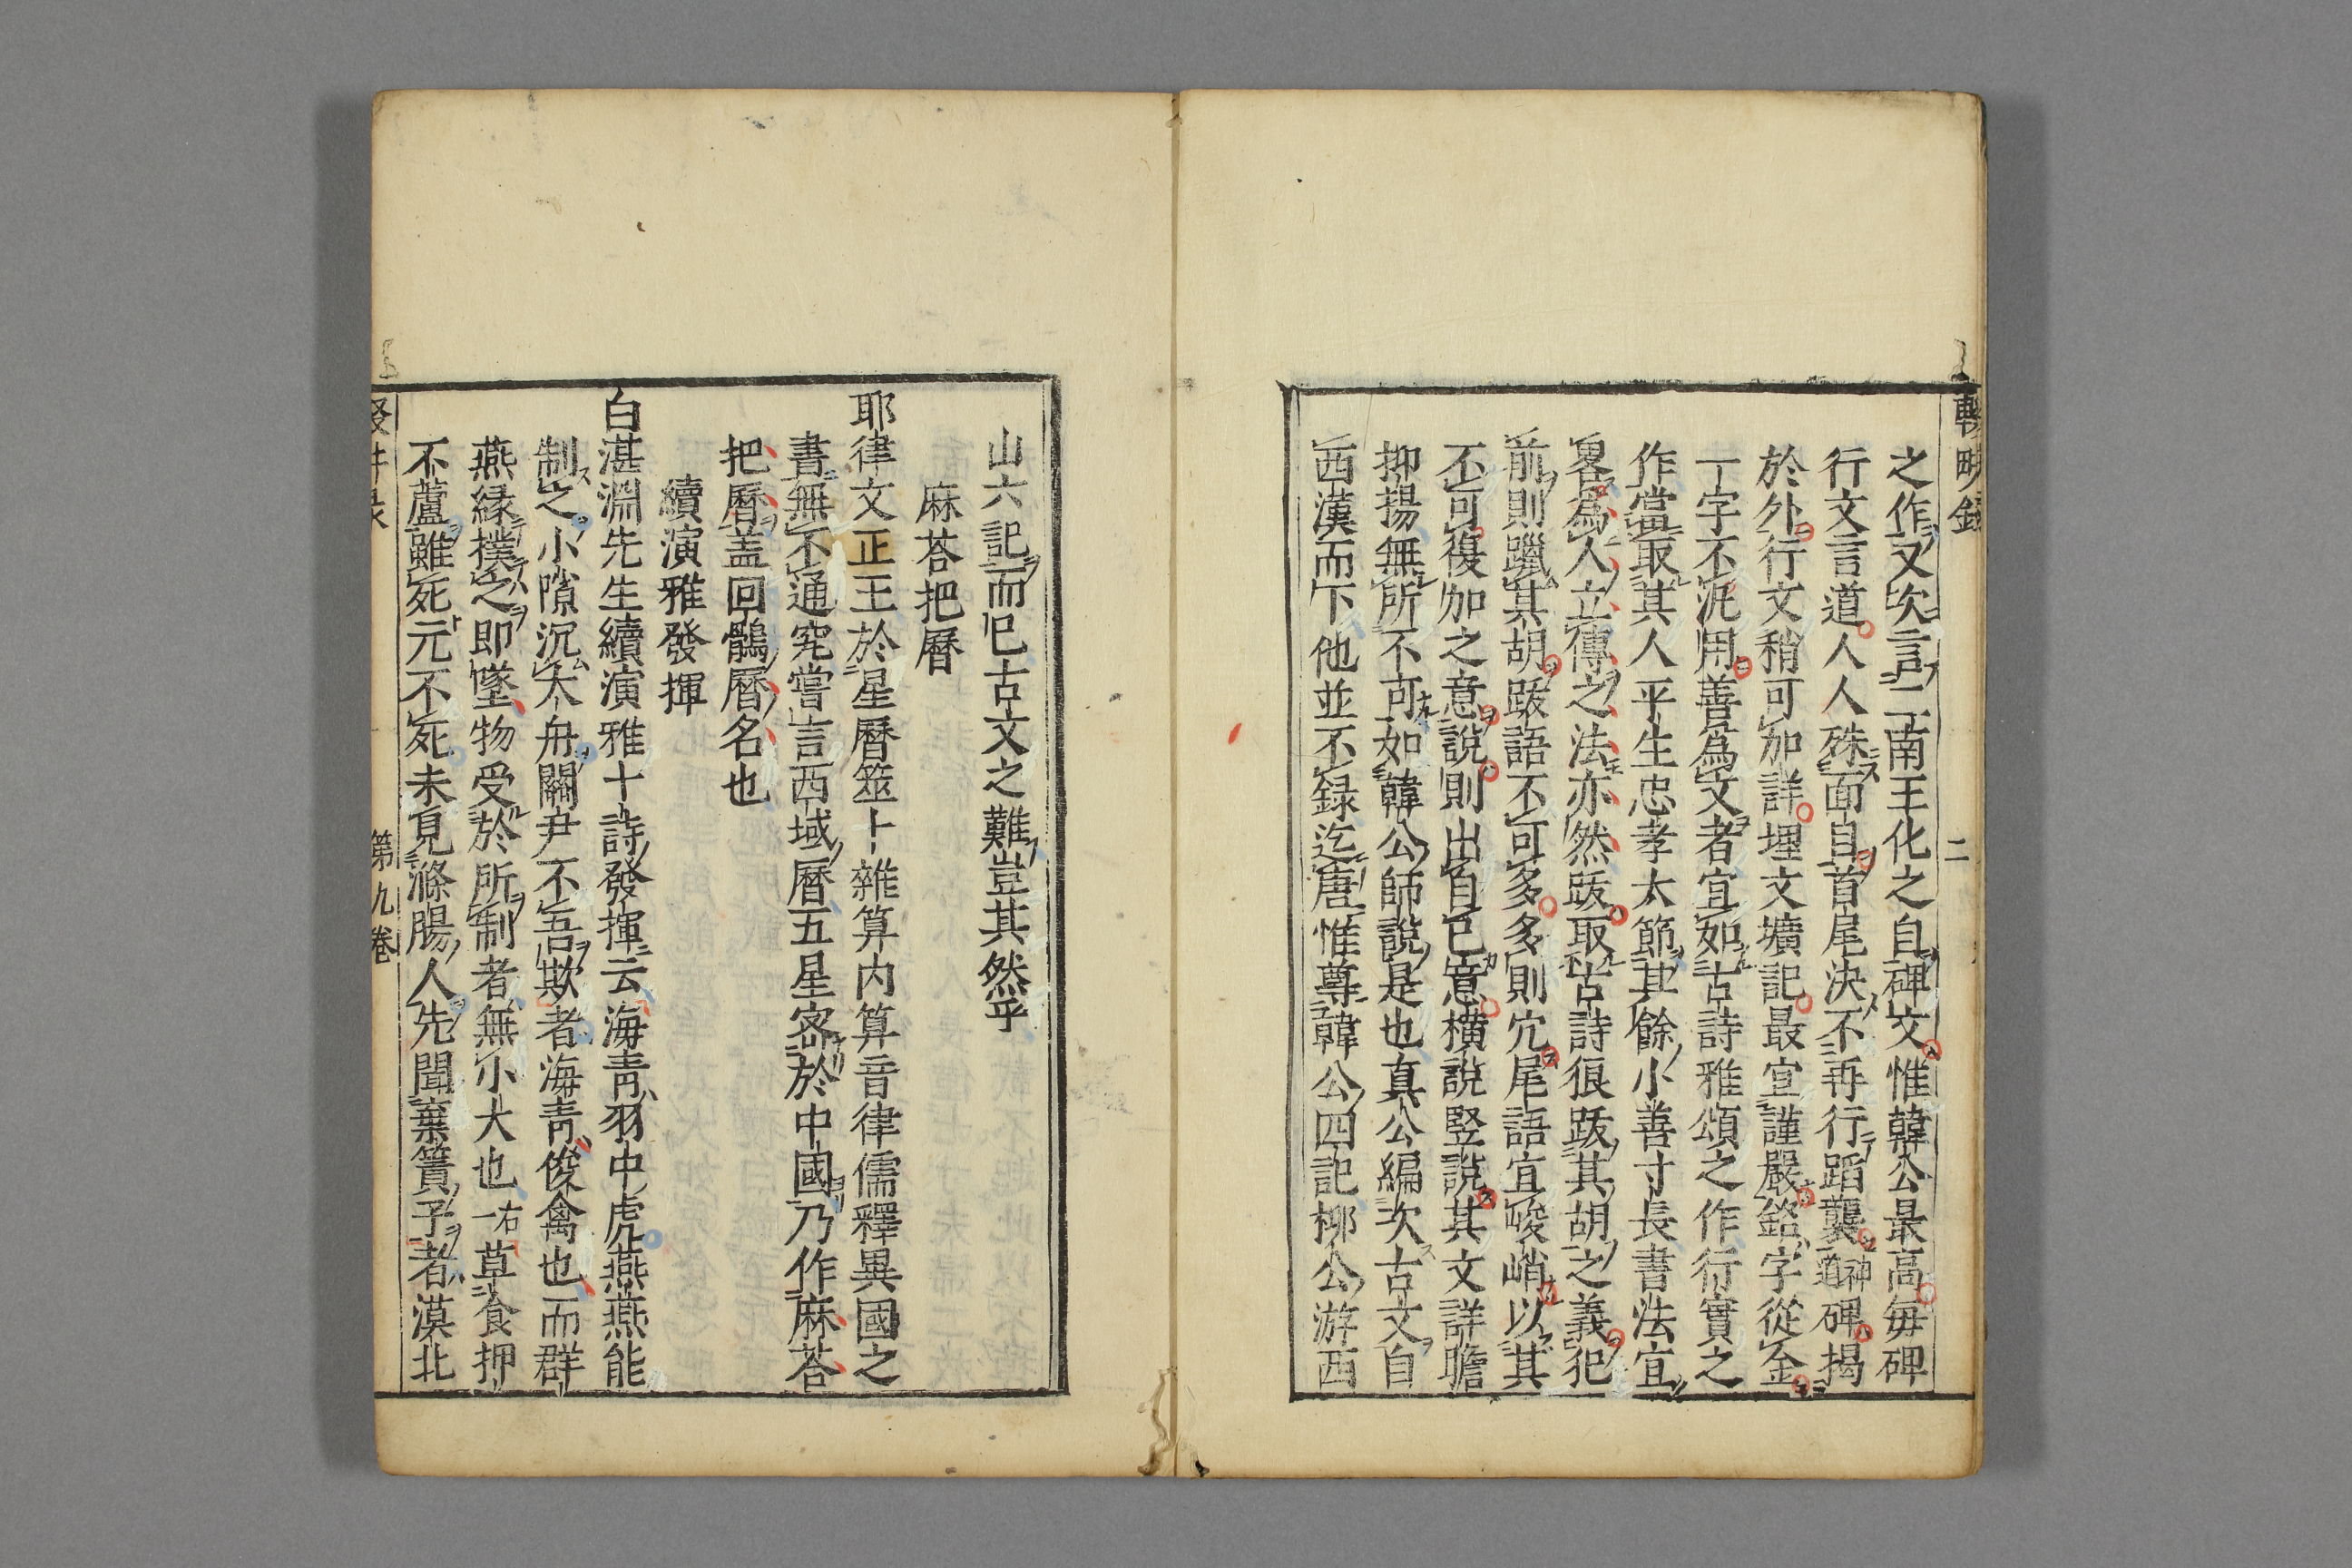 輟畊録
二
之作又次言二南王化之自碑文惟韓公最高毎碑
行文言道人人殊面自首尾決不再行蹈襲神道碑揭
於外行文稍可加詳埋文壙記最宜謹嚴銘字從金
一字不泥用善為文者宜如古詩雅頌之作行實之
作當取其人平生忠孝大節其餘小善寸長書法宜
畧為人立傳之法亦然跋取古詩很跋其胡之義犯
前則躐其胡跋語不可多多則冗尾語宜峻峭以其
不可復加之意說則出自己意橫說竪說其文詳贍
抑揚無所不可如韓公師說是也真公編次古文自
西漢而下他並不録迄唐惟尊韓公四記柳公游西
山六記而已古文之難豈其然乎
麻荅把曆
耶律文正王於星曆筮卜雜算内算音律儒釋異國之
書無不通究嘗言西域曆五星密於中國乃作麻荅
把曆盖回鶻曆名也
續演雅發揮
白湛淵先生續演雅十詩發揮云海青羽中虎燕燕能
制之小隙沉大舟關尹不吾欺者海青俊禽也而群
燕縁撲之即墜物受於所制者無小大也右一草食押
不蘆雖死元不死未見滌腸人先聞棄簀子者漠北
第九卷